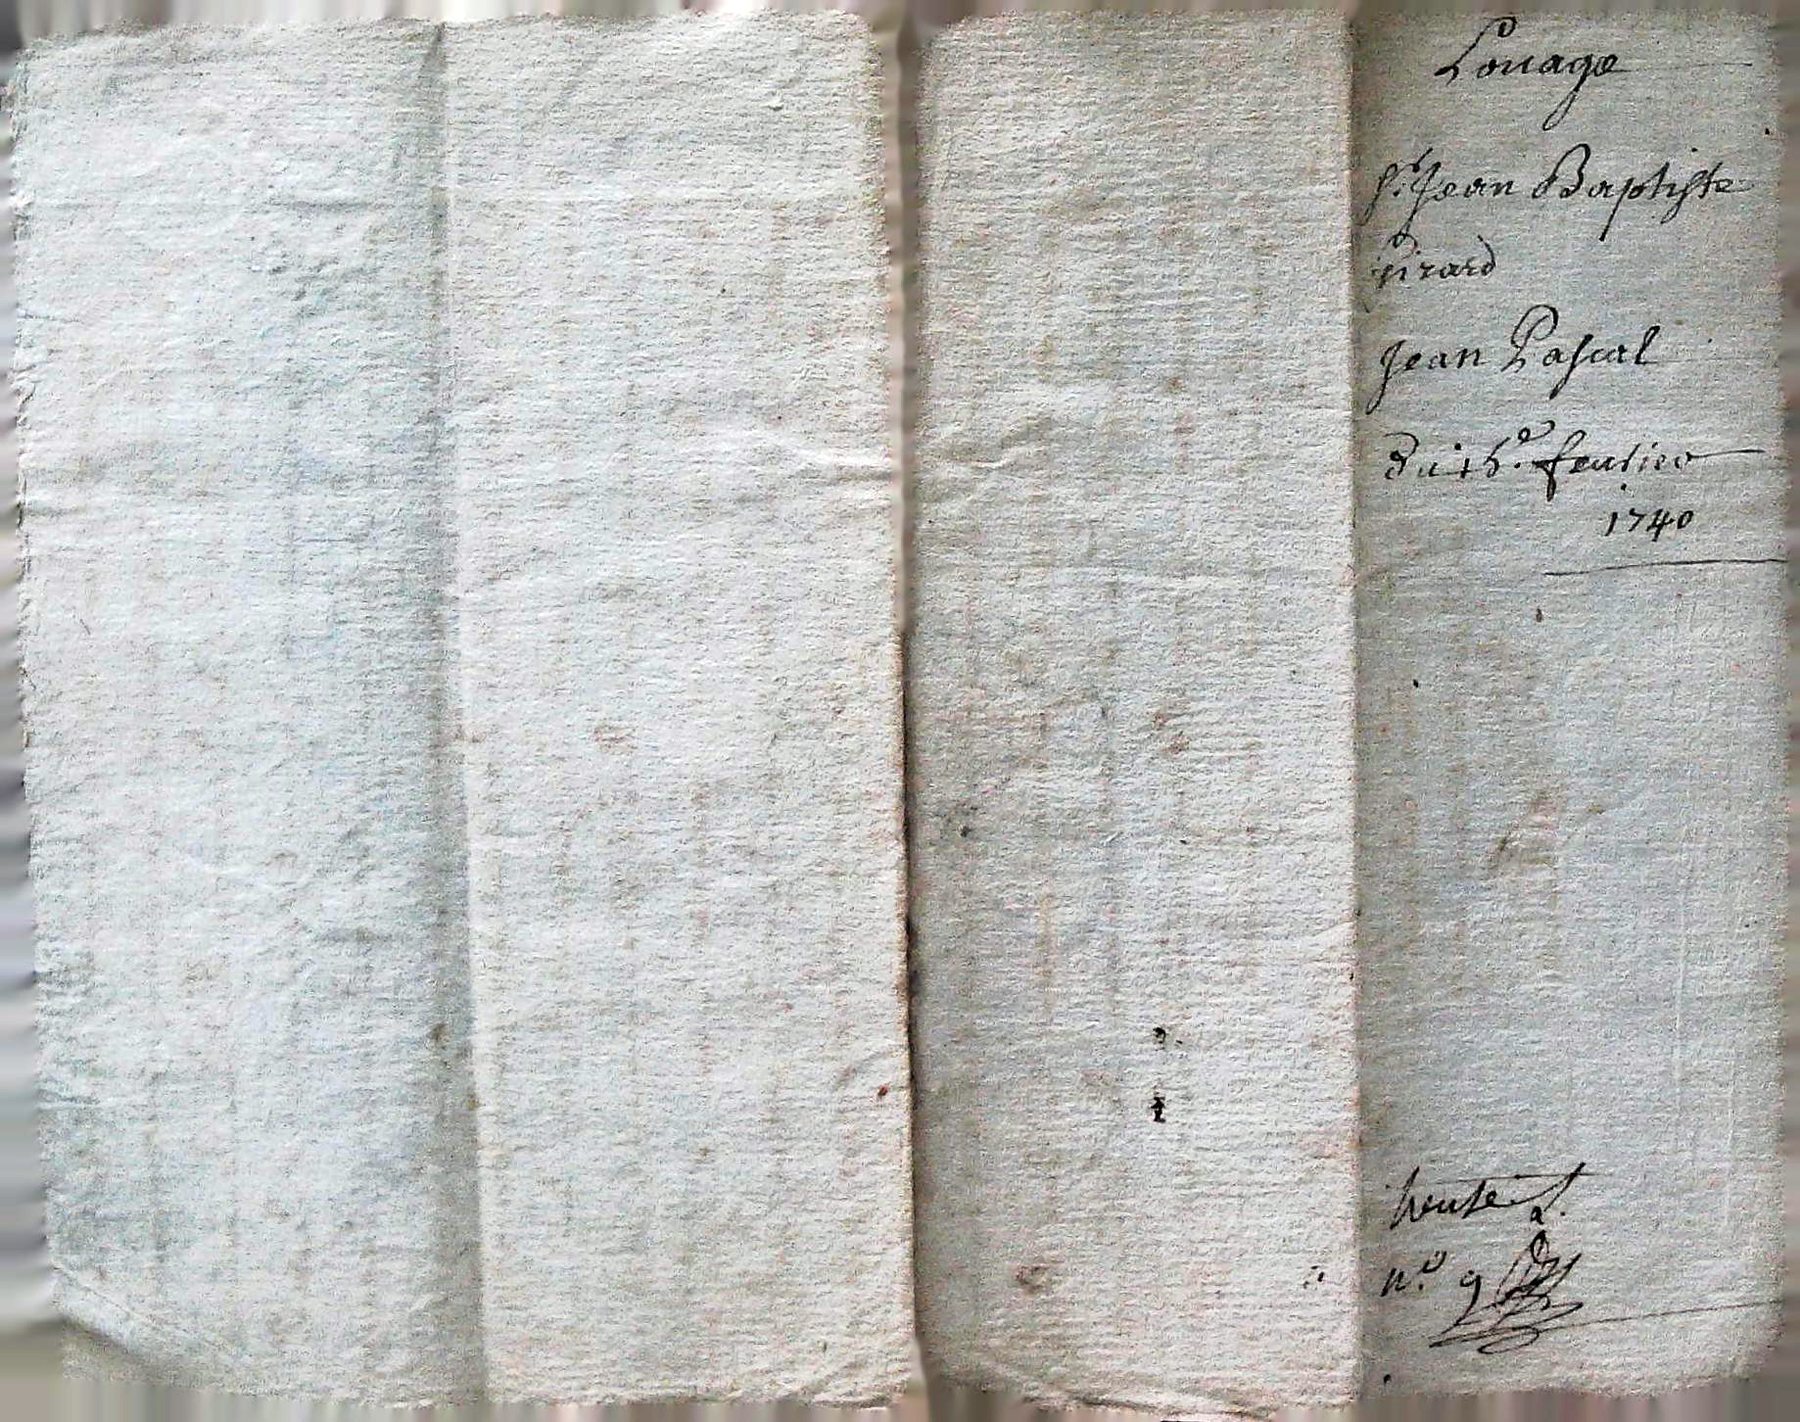 Louage
Sr. Jean Baptiste
Pirard
Jean Pascal
Du 15e. feurier
1740
n.o 9